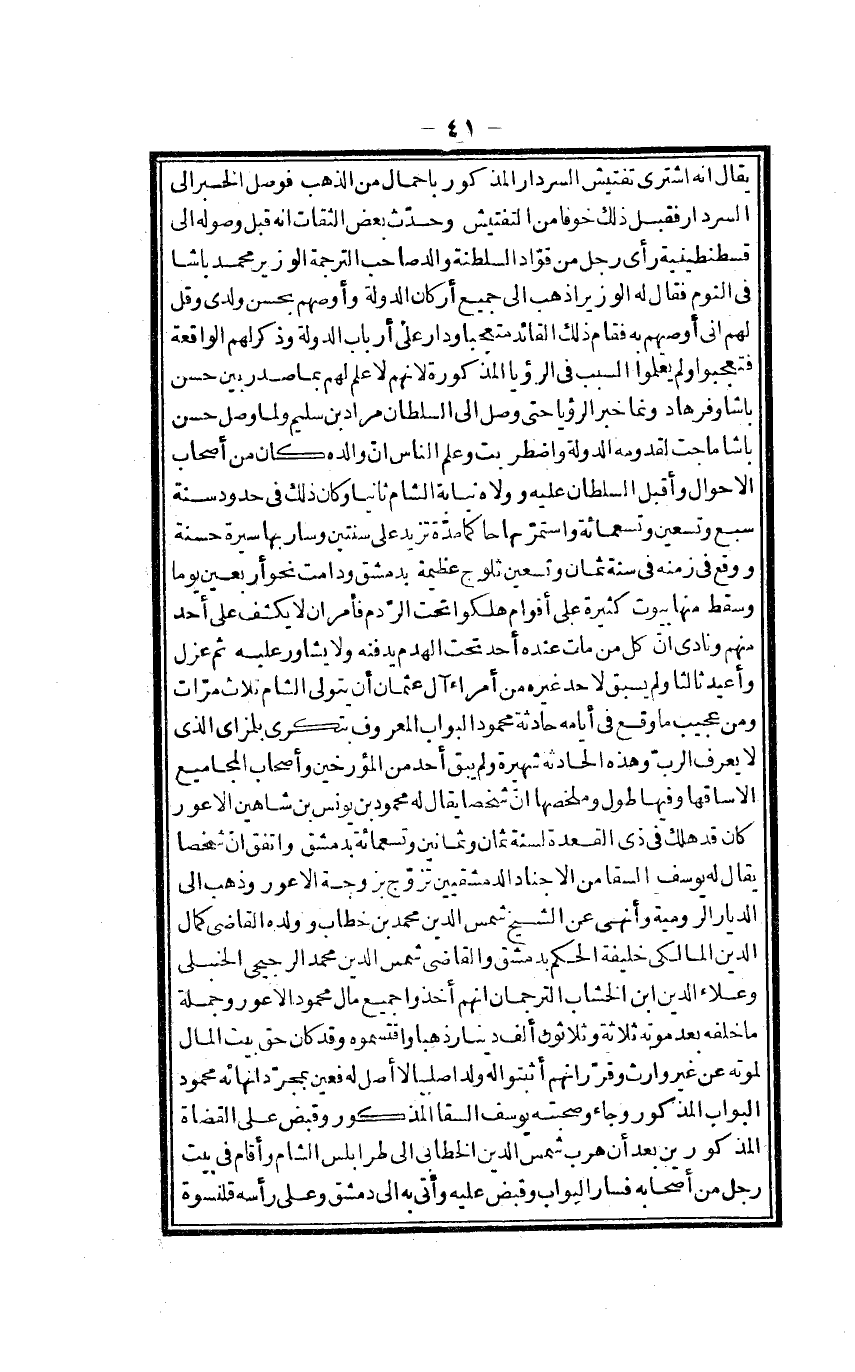 - ٤١ -
يقال انه اشترى تفتيش السردار المذكور باحمال من الذهب فوصل الخبر الى
السردار فقبل ذلك خوفا من التفتيش وحدّث بعض الثقات انه قبل وصوله الى
قسطنطينية رأى رجل من قوّاد السلطنة والد صاحب الترجمة الوزير محمد باشا
فى النوم فقال له الوزير اذهب الى جميع أركان الدولة وأوصهم بحسن ولدى وقل
لهم انى أوصهم به فقام ذلك القائد متعجبا ودار على أرباب الدولة وذكر لهم الواقعة
فتعجبوا ولم يعلموا السبب فى الرؤيا المذكورة لانهم لا علم لهم بما صدر بين حسن
باشا وفرهاد ونما خبر الرؤيا حتى وصل الى السلطان مراد بن سليم ولما وصل حسن
باشا ماجت لقدومه الدولة واضطربت وعلم الناس انّ والده كان من أصحاب
الاحوال وأقبل السلطان عليه وولاه نيابة الشام ثانيا وكان ذلك فى حدود سنة
سبع وتسعين وتسعمائة واستمرّ بها حاكما مدّة تزيد على سنتين وسار بها سيرة حسنة
ووقع فى زمنه فى سنة ثمان وتسعين ثلوج عظيمة بدمشق ودامت نحو أربعين يوما
وسقط منها بيوت كثيرة على أقوام هلكوا تحت الردم فأمر ان لا يكشف على أحد
منهم ونادى انّ كل من مات عنده أحد تحت الهدم يدفنه ولا يشاور عليه ثم عزل
وأعيد ثالثا ولم يسبق لاحد غيره من أمراء آل عثمان أن يتولى الشام ثلاث مرّات
ومن عجيب ما وقع فى أيامه حادثة محمود البواب المعروف بتكرى بلمزاى الذى
لا يعرف الربّ وهذه الحادثة شهيرة ولم يبق أحد من المؤرخين وأصحاب المجاميع
الا ساقها وفيها طول وملخصها انّ شخصا يقال له محمود بن يونس بن شاهين الاعور
كان قد هلك فى ذى القعدة لسنة ثمان وثمانين وتسعمائة بدمشق واتفق انّ شخصا
يقال له يوسف السقا من الاجناد الدمشقيين تزوّج بزوجة الاعور وذهب الى
الديار الرومية وأنهى عن الشيخ شمس الدين محمد بن خطاب وولده القاضى كمال
الدين المالكى خليفة الحكم بدمشق والقاضى شمس الدين محمد الرجيحى الحنبلى
وعلاء الدين ابن الخشاب الترجمان انهم أخذوا جميع مال محمود الاعور وجملة
ما خلفه بعد موته ثلاثة وثلاثون ألف دينار ذهبا واقتسموه وقد كان حق بيت المال
لموته عن غير وارث وقرّر انهم أثبتوا له ولدا صلبيا لا أصل له فعين بمجرّد انهائه محمود
البواب المذكور وجاء وصحبته يوسف السقا المذكور وقبض على القضاة
المذكورين بعد أن هرب شمس الدين الخطابى الى طرابلس الشام وأقام فى بيت
رجل من أصحابه فسار البواب وقبض عليه وأتى به الى دمشق وعلى رأسه قلنسوة